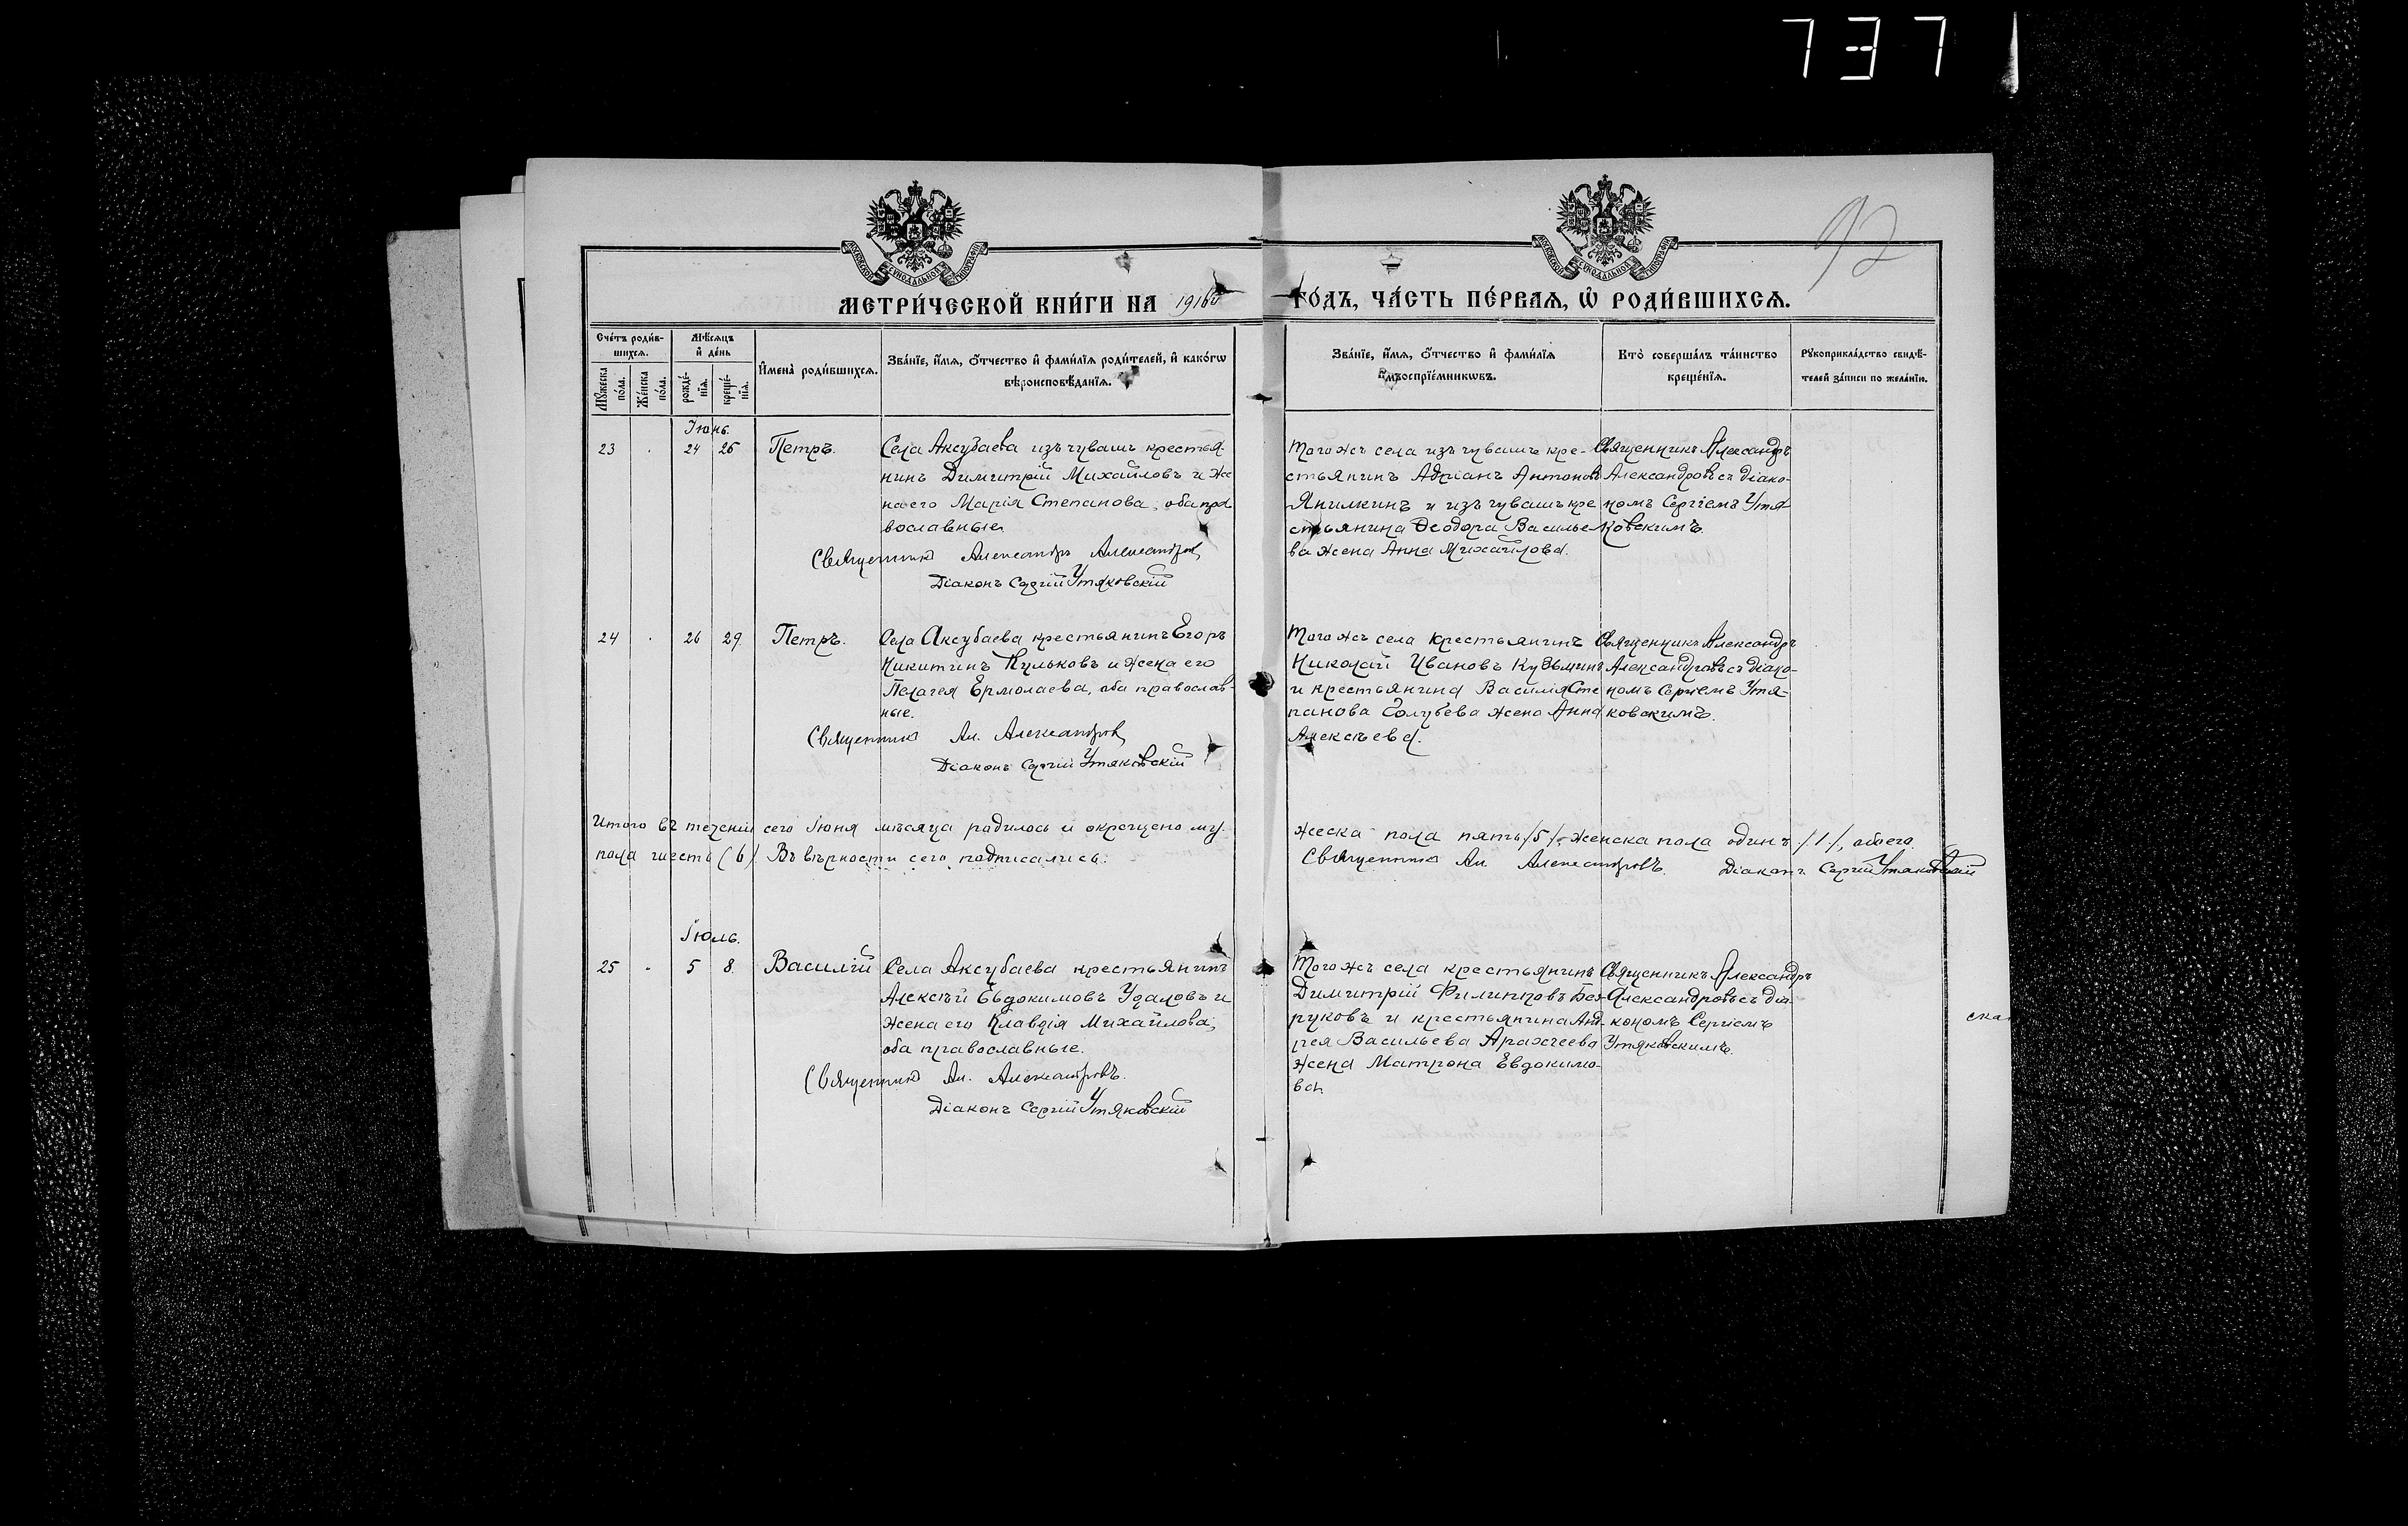 737
92
МЕТРИ́ЧЕСКОЙ КНИ́ГИ НА 1916й ГО́ДЪ, ЧА́СТЬ ПЕ́РВАѦ, Ѽ РОДИ́ВШИХСѦ.
Сче́тъ роди́в-
шихсѧ.
Мѣ́сѧцъ
и҆ де́нь
Мꙋ́жеска
по́ла.
Же́нска
по́ла.
рожде́-
нїѧ.
креще́-
нїѧ.
И҆мена̀ роди́вшихсѧ.
Зва́нїе, и҆́мѧ, ѻ҆́тчество и҆ фами́лїѧ роди́телей, и҆ како́гѡ
вѣроисповѣ́данїѧ.
Зва́нїе, и҆́мѧ, ѻ҆́тчество и҆ фами́лїѧ
воспрїе́мникѡвъ.
Кто̀ соверша́лъ та́инство
креще́нїѧ.
Рꙋкоприкла́дство свидѣ́-
телей за́писи по жела́нїю.
Іюнь.
23 . 24 25 Петръ.
Села Аксубаева изъ чувашъ крестья
нинъ Димитрій Михайловъ и же
на его Марія Степанова, оба пра
вославные.
Священникъ Александръ Александровъ
Діаконъ Сергій Утяковскій
Того же села изъ чувашъ кре-
стьянинъ Адріанъ Антоновъ
Янилкинъ и изъ чувашъ кре
стьянина Ѳеодора Василье
ва жена Анна Михайлова.
Священникъ Александръ
Александровъ съ діако-
номъ Сергіемъ Утя
ковскимъ.
24 . 26 29. Петръ.
Села Аксубаева крестьянинъ Егоръ
Никитинъ Кульковъ и жена его
Пелагея Ермолаева, оба православ-
ные.
Священникъ Ал. Александровъ
Діаконъ Сергій Утяковскій
Того же села крестьянинъ
Николай Ивановъ Кузьминъ
и крестьянина Василія Сте
панова Голубева жена Анна
Алексѣева.
Священникъ Александръ
Александровъ съ діако-
номъ Сергіемъ Утя-
ковскимъ.
Итого въ теченіи сего Іюня мѣсяца родилось и окрещено му-
жеска пола пять /5/, женска пола одинъ /1/, обоего
пола шесть (6). Въ вѣрности сего подписались:
Священникъ Ал Александровъ. Діаконъ Сергій Утяковскій
Іюль.
25 . 5 8. Василій
Села Аксубаева крестьянинъ
Алексѣй Евдокимовъ Удаловъ и
жена его Клавдія Михайлова,
оба православные.
Священникъ Ал. Александровъ.
Діаконъ Сергій Утяковскій
Того же села крестьянинъ
Димитрій Филипповъ Без-
руковъ и крестьянина Анд-
рея Васильева
жена Матрона Евдокимо-
ва.
Священникъ Александръ
Александровъ съ діа
кономъ Сергіемъ
Утяковскимъ.
ска